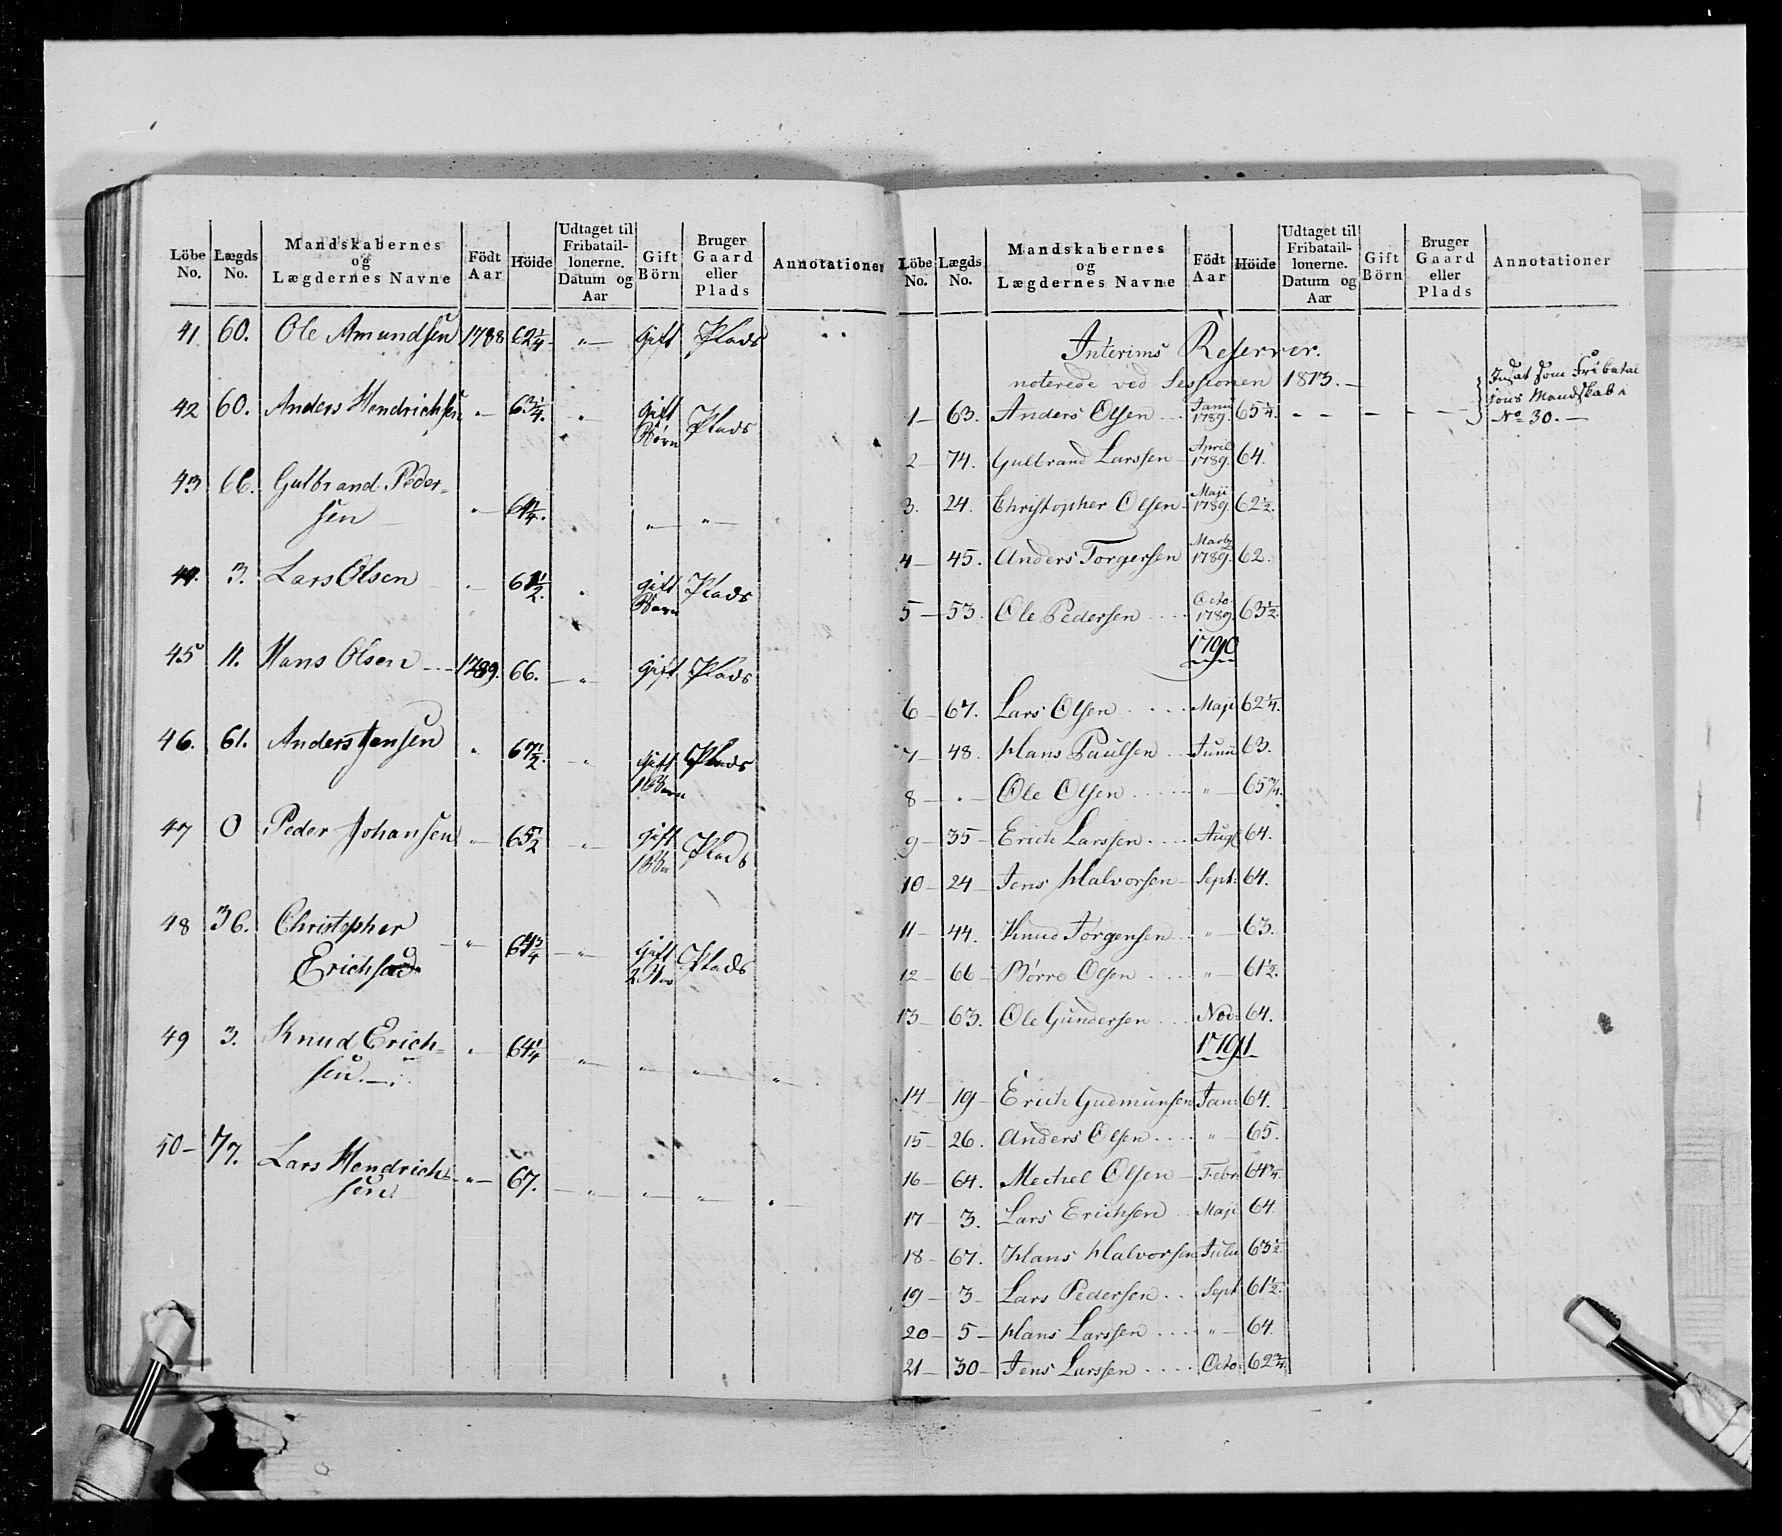 Löbe No. Lægds No. Mandskabernes og Lægdernes Navne Födt Aar Höide Udtaget til Fribatail-lonerne. Datum og Aar Gift Börn Bruger Gaard eller Plads Annotationer
41. 60. Ole Amundsen 1788 62 1/4 " Gift Plads
42 60. Anders Hendrichsen " 63 1/4. " gift Børn Plads
43 66. Gulbrand Peder-
sen " " "
44. 3. Lars Olsen " 61 1/2. " gift Barn Plads
45 11. Hans Olsen 1789. 66. " gift Plads
46. 61. Anders Jensen " 67 1/2. " Gift 1 Barn Plads
47 0 Peder Johansen " 65 1/2 " gift Plads
48 36. Christopher
Erichsen " 64 3/4 " Gift Plads
49 3. Knud Erich-
sen " 64 1/4 " " " "
50 77. Lars Hendrich-
sen " 67. " " " "
Löbe No. Lægds No. Mandskabernes og Lægdernes Navne Födt Aar Höide Udtaget til Fribatail-lonerne. Datum og Aar Gift Börn Bruger Gaard eller Plads Annotationer
Interims Reserver.
noterede ved Sessionen 1813.
1 63. Anders Olsen Janu 1789. 65 1/4. Indsat som Fribatal
jons Mandskab i
No 30.
2 74. Gulbrand Larssen April 1789. 64.
3. 24. Christopher Olsen Maji 1789. 62 1/2.
4 45. Anders Torgersen 1789. 62.
5 53. Ole Pedersen Octo 1789. 63 1/2.
1790
6 67. Lars Olsen Maji 62 1/4.
7 48. Hans Paulsen Junii 63.
8 " Ole Olsen " 65 3/4.
9 35 Erich Larssen Aug 64.
10 24 Jens Halvorsen Sept: 64.
11 44. Knud Torgensen " 63.
12 66 Børre Olsen " 61 1/2.
13 63. Ole Gundersen Nov: 64.
1791
14 19 Erich Gudmunsen Jan: 64.
15 26. Anders Olsen " 65.
16 64. Mechel Olsen Febr: 64 3/4.
17 3. Lars Erichsen Maji 64.
18 67. Hans Halvorsen Julii 63 1/2
19 3 Lars Pedersen Sept 61 1/2.
20 5 Hans Larssen " 64.
21 30 Jens Larssen Octo: 62 3/4.